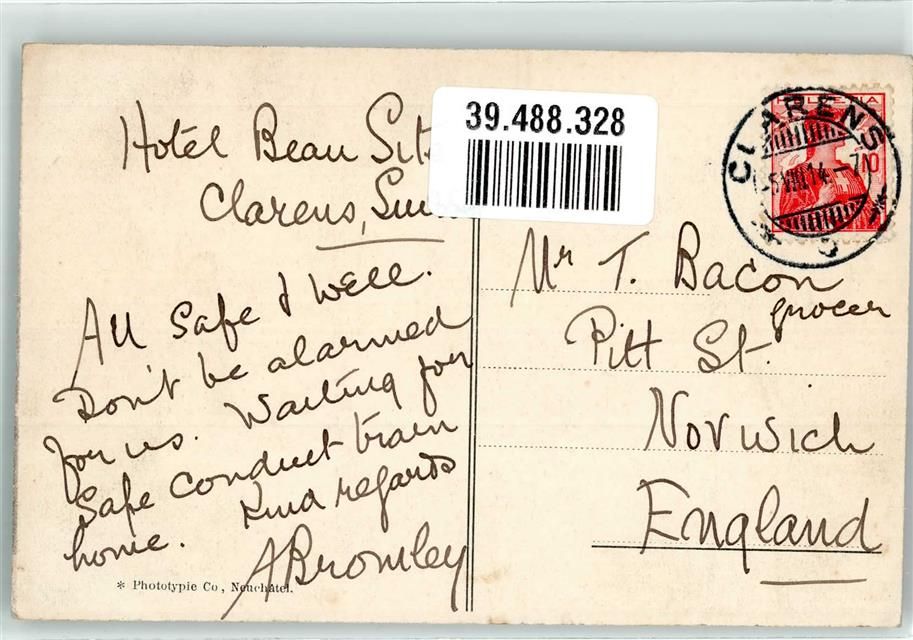 39.488.328
HELVETIA
10
CLARENS
VIII 14 - 7
Hotel Beau Site
Clarens,
All Safe & well.
Don't be alarmed
for us. Waiting for
Safe Conduct train
home. Kind regards
ABromley
Mr T. Bacon
grocer
Pitt St.
Norwich
England
* Phototypie Co, Neuchâtel.